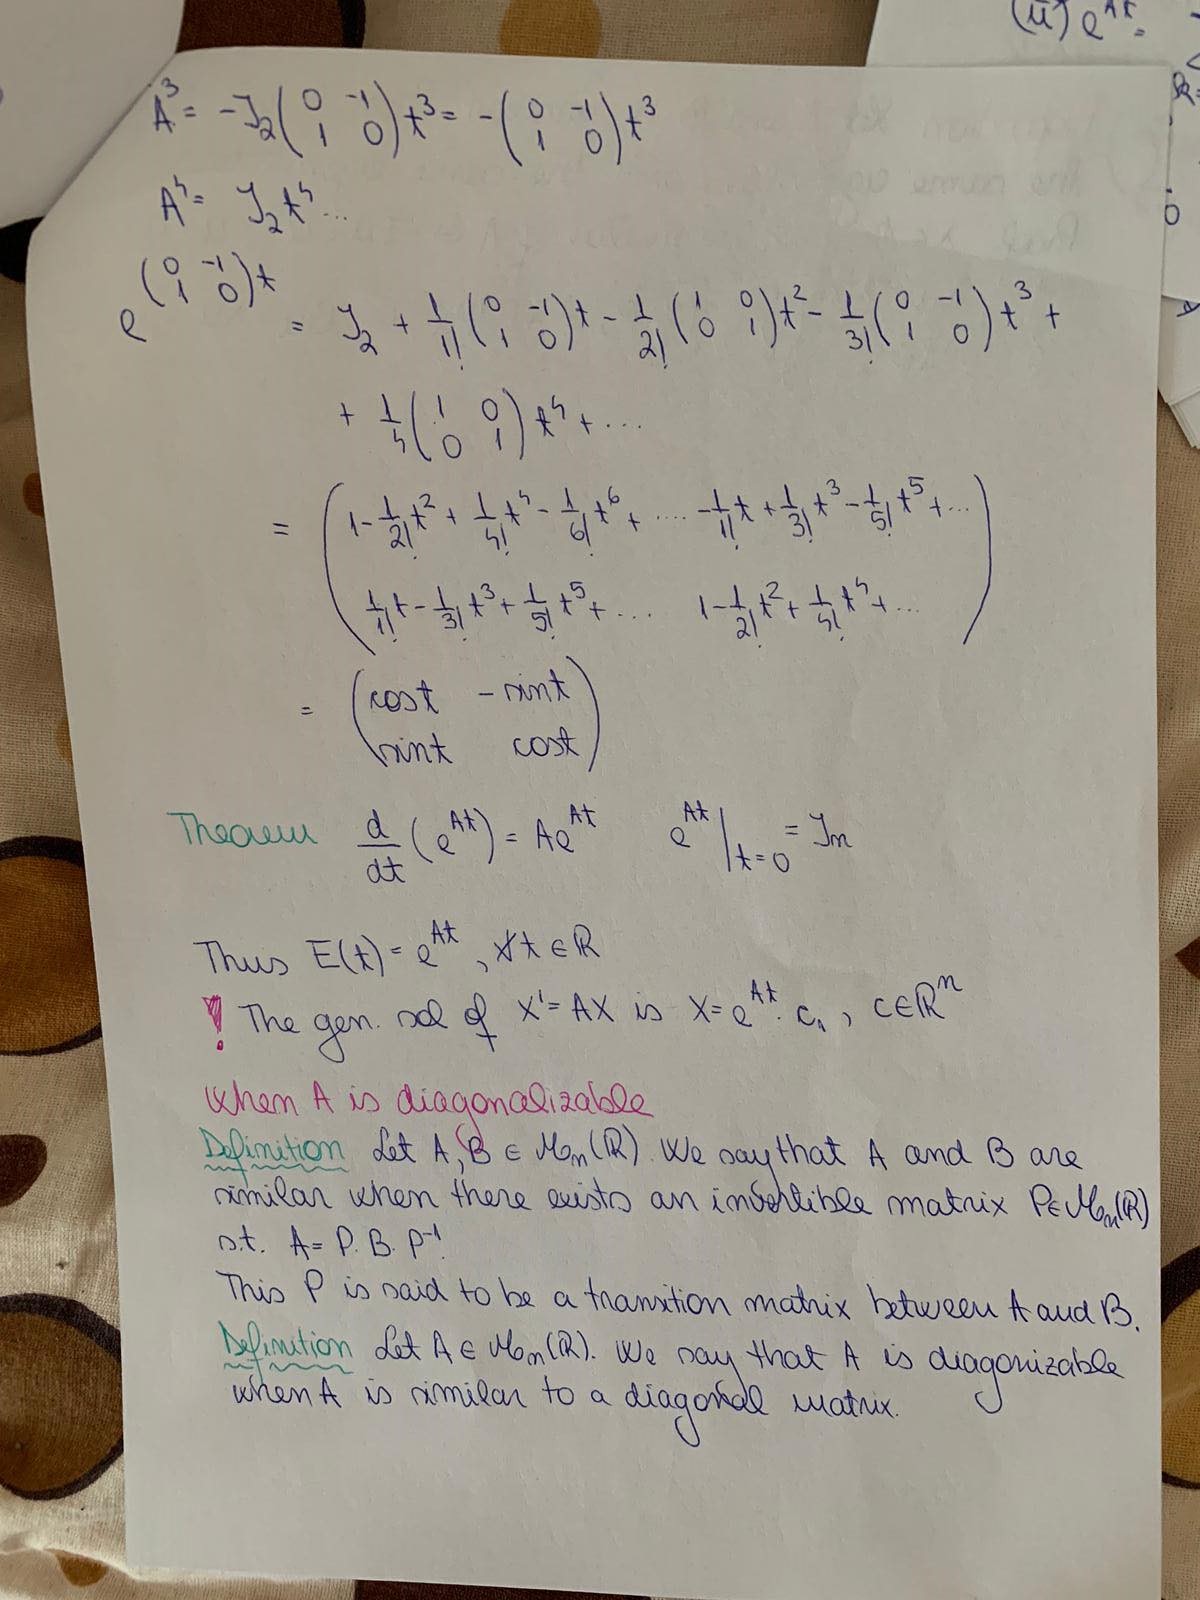 (ii) e^{At} =
A^3 = -J_2 ( 0 -1 ; 1 0 ) t^3 = - ( 0 -1 ; 1 0 ) t^3
A^4 = J_2 t^4 ...
e^{( 0 -1 ; 1 0 ) t} = J_2 + 1/1! ( 0 -1 ; 1 0 ) t - 1/2! ( 1 0 ; 0 1 ) t^2 - 1/3! ( 0 -1 ; 1 0 ) t^3 +
+ 1/4 ( 1 0 ; 0 1 ) t^4 + ...
= ( 1 - 1/2! t^2 + 1/4! t^4 - 1/6! t^6 + ... -1/1! t + 1/3! t^3 - 1/5! t^5 + ...
1/1! t - 1/3! t^3 + 1/5! t^5 + ... 1 - 1/2! t^2 + 1/4! t^4 + ... )
= ( cost -sint
sint cost )
Theorem d/dt (e^{At}) = Ae^{At} e^{At} |_{t=0} = J_n
Thus E(t) = e^{At}, ∀t ∈ ℝ
! The gen. sol of X' = AX is X = e^{At} · c, c ∈ ℝ^n
When A is diagonalizable
Definition Let A, B ∈ M_n(ℝ). We say that A and B are
similar when there exists an invertible matrix P ∈ M_n(ℝ)
s.t. A = P · B · P^{-1}
This P is said to be a transition matrix between A and B.
Definition Let A ∈ M_n(ℝ). We say that A is diagonizable
when A is similar to a diagonal matrix.